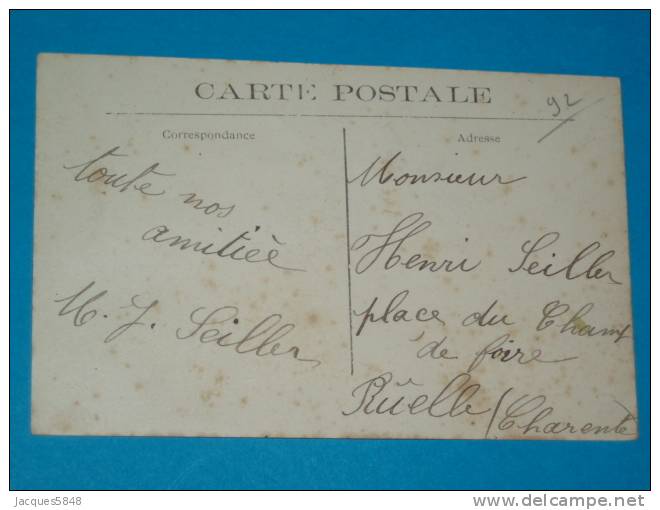 CARTE POSTALE
92
Correspondance
toute nos
amitiée
M. J. Seiller
Adresse
Monsieur
Henri Seiller
place du Champ
de foire
Ruelle (Charente
Jacques5848
delcampe.net